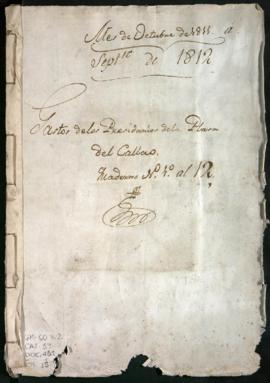 Mes de Octubre de 1811 a
Sepre de 1812
Gastos de los Presidarios de la Plaza
del Callao.
Quaderno Nº 1º al 12